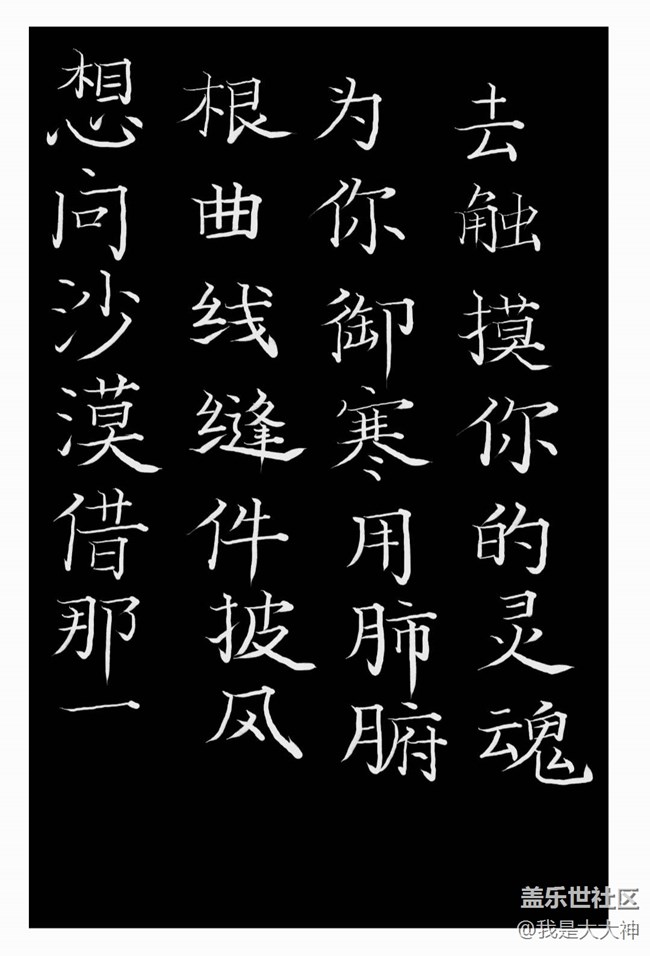 想向沙漠借那一
根曲线缝件披风
为你御寒用肺腑
去触摸你的灵魂
盖乐世社区
@我是大大神